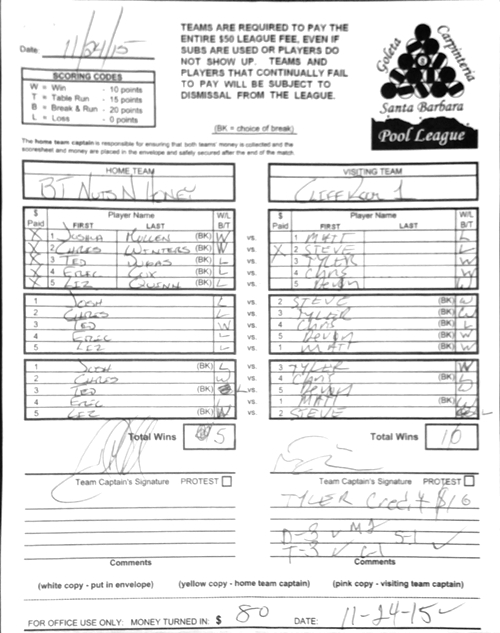 Date: 11/24/15
TEAMS ARE REQUIRED TO PAY THE
ENTIRE $50 LEAGUE FEE, EVEN IF
SUBS ARE USED OR PLAYERS DO
NOT SHOW UP. TEAMS AND
PLAYERS THAT CONTINUALLY FAIL
TO PAY WILL BE SUBJECT TO
DISMISSAL FROM THE LEAGUE.
Goleta Carpinteria
Santa Barbara
Pool League
SCORING CODES
W = Win - 10 points
T = Table Run - 15 points
B = Break & Run - 20 points
L = Loss - 0 points
(BK = choice of break)
The home team captain is responsible for ensuring that both teams' money is collected and the
scoresheet and money are placed in the envelope and safely secured after the end of the match.
HOME TEAM VISITING TEAM
BJ NUTS N HONEY CLIFF ROOM 1
$ Paid Player Name FIRST LAST W/L B/T $ Paid Player Name FIRST LAST W/L B/T
X 1 JOSHUA MULLEN (BK) W vs. 1 MATT L
X 2 CHRES WINTERS (BK) W vs. X 2 STEVE L
X 3 TED (BK) L vs. 3 TYLER W
X 4 EREC COX (BK) L vs. 4 Chris W
X 5 LIZ QUENN (BK) L vs. 5 Devon W
1 JOSH L vs. 2 STEVE (BK) W
2 CHRES L vs. 3 TYLER (BK) W
3 TED W vs. 4 Chris (BK) L
4 EREC L vs. 5 Devon (BK) W
5 LIZ L vs. 1 MATT (BK) W
1 JOSH (BK) L vs. 3 TYLER W
2 CHRES W vs. 4 Chris (BK) L
3 TED (BK) L vs. 5 Devon W
4 EREC L vs. 1 MATT (BK) W
5 LIZ (BK) W vs. 2 STEVE L
Total Wins 5 Total Wins 10
Team Captain's Signature PROTEST Team Captain's Signature PROTEST
TYLER Credit $16
D-3 ✓ M1 S-1 ✓
T-3 ✓ C-1
Comments Comments
(white copy - put in envelope) (yellow copy - home team captain) (pink copy - visiting team captain)
FOR OFFICE USE ONLY: MONEY TURNED IN: $ 80 DATE: 11-24-15